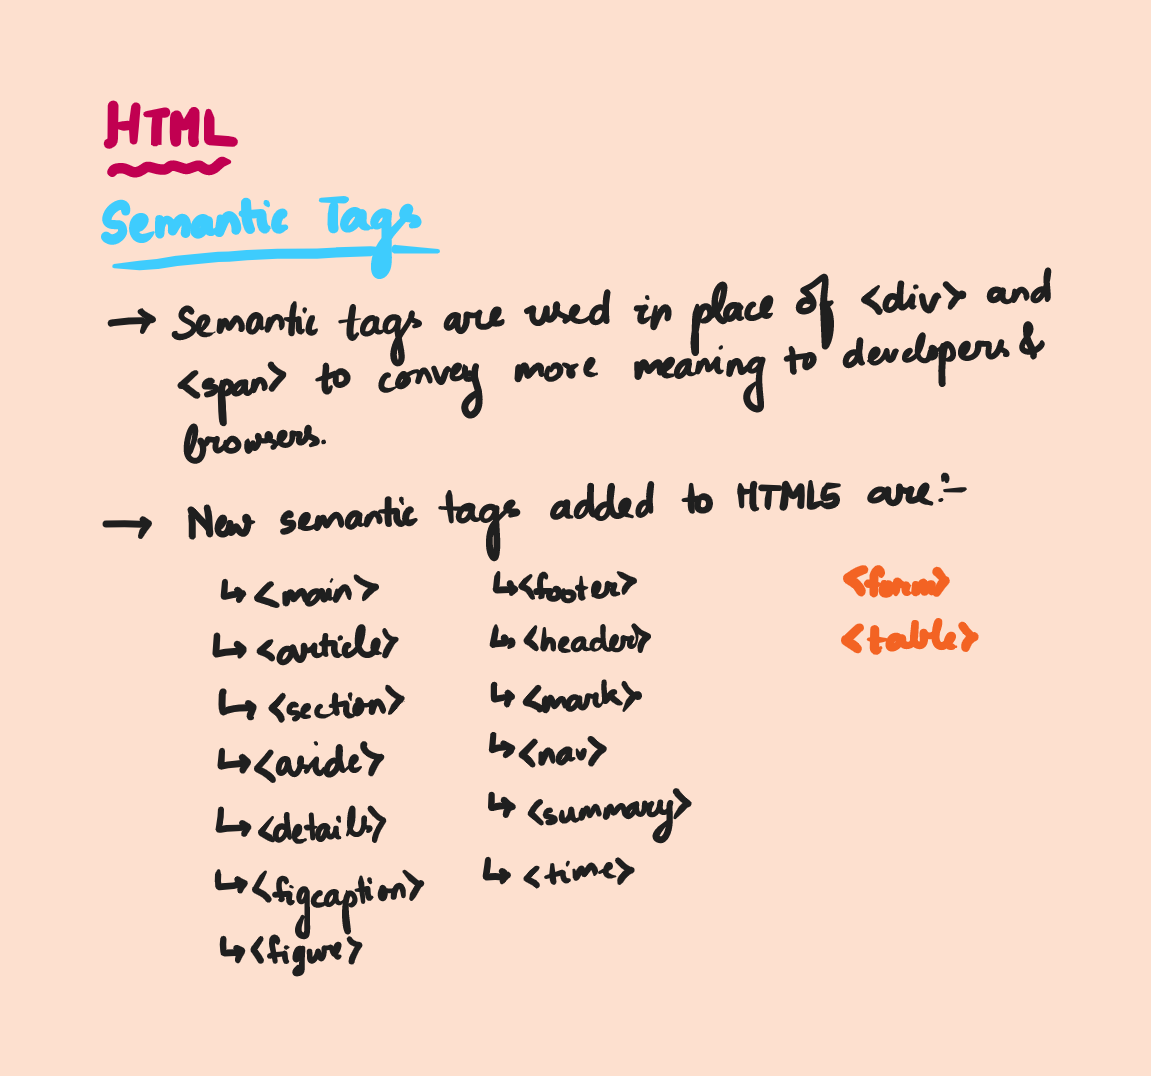 HTML
Semantic Tags
→ Semantic tags are used in place of <div> and
<span> to convey more meaning to developers &
browsers.
→ New semantic tags added to HTML5 are:-
↳ <main>
↳ <article>
↳ <section>
↳ <aside>
↳ <details>
↳ <figcaption>
↳ <figure>
↳ <footer>
↳ <header>
↳ <mark>
↳ <nav>
↳ <summary>
↳ <time>
<form>
<table>